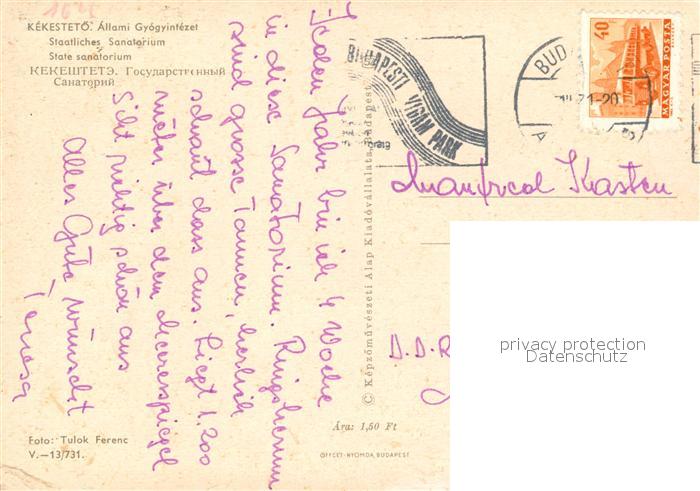 KÉKESTETŐ. Állami Gyógyintézet
Staatliches Sanatorium
State sanatorium
КЕКЕШТЕТЭ. Государственный
Санаторий
Jeden Jahr bin ich 4 Woche
in diese Sanatorium. Ringsherum
sind grosse Tannen, herrlich
schaut dass aus. Liegt 1.200
meter über dem Meeresspiegel
Sieht richtig schön aus
Alles Gute wünscht
Foto: Tulok Ferenc
V.—13/731.
© Képzőművészeti Alap Kiadóvállalata, Budapest
Ára: 1,50 Ft
OFFSET-NYOMDA, BUDAPEST
BUDAPESTI VIDÁM PARK
BUDA
71-20
40
MAGYAR POSTA
Manfred Kasten
D.D.R
privacy protection
Datenschutz